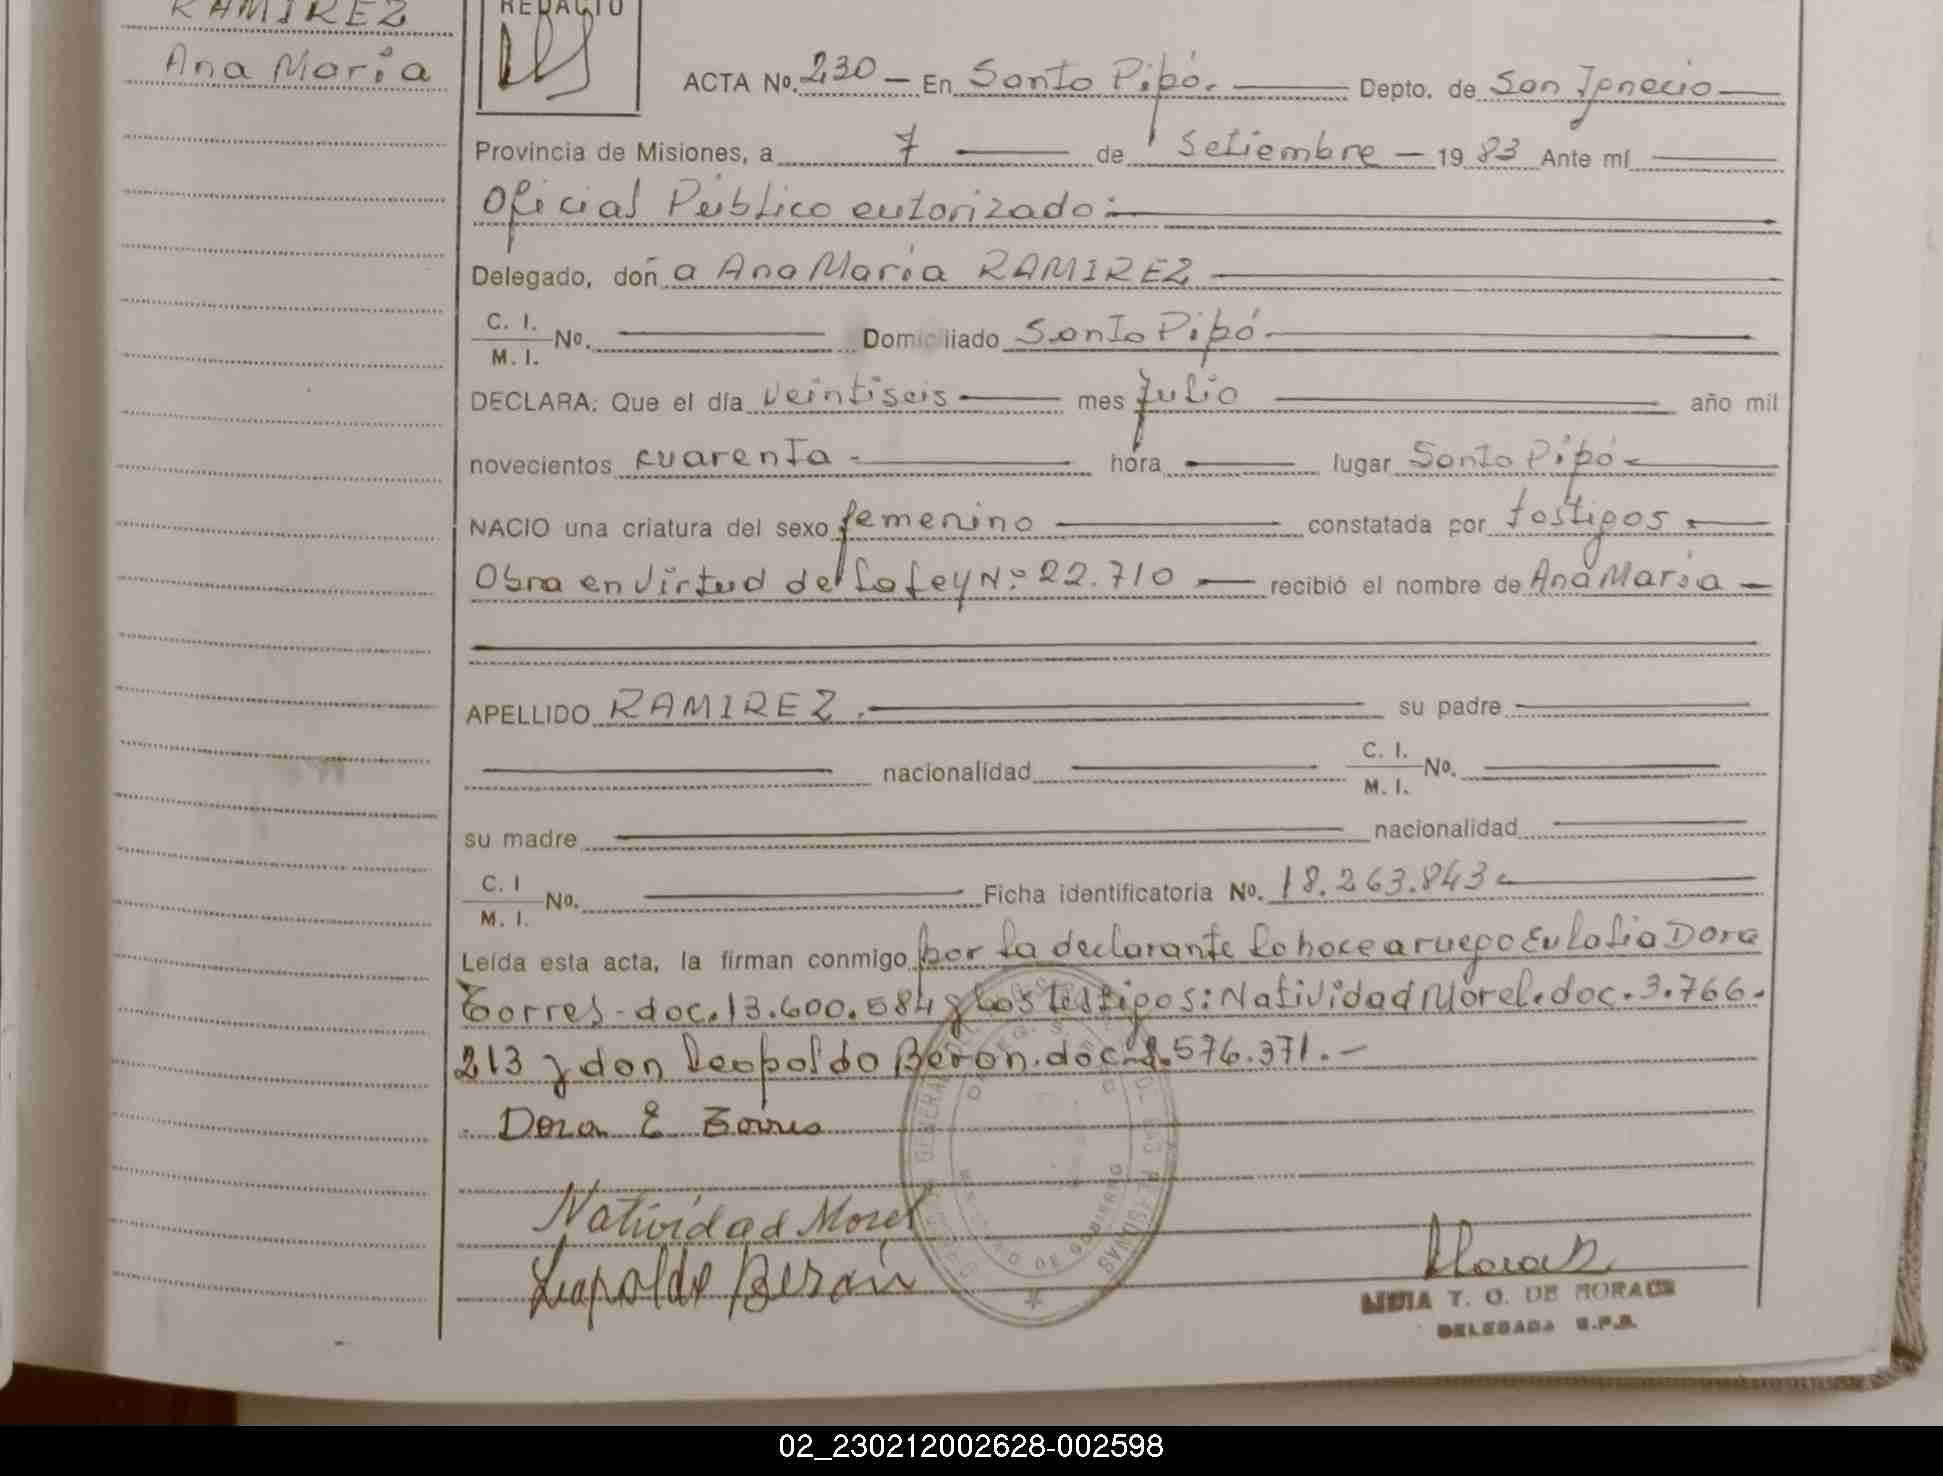 RAMIREZ
Ana María
REDACTO
ACTA No. 230 — En Santo Pipó. Depto. de San Ignacio
Provincia de Misiones, a 7 de Setiembre 1983 Ante mí
Oficial Público autorizado:
Delegado, doña Ana María RAMIREZ
C. I.
M. I. No. Domiciliado Santo Pipó
DECLARA: Que el día veintiseis mes Julio año mil
novecientos cuarenta hora lugar Santo Pipó
NACIO una criatura del sexo femenino constatada por testigos
Obra en virtud de la Ley N° 22.710 recibió el nombre de Ana María
APELLIDO RAMIREZ su padre
nacionalidad C. I.
M. I. No.
su madre nacionalidad
C. I
M. I. No. Ficha identificatoria No. 18.263.843
Leída esta acta, la firman conmigo por la declarante lo hace a ruego Eulalia Dora
Torres - doc. 13.600.584 y los testigos: Natividad Morel. doc. 3.766.
213 y don Leopoldo Beron. doc. 576.371. —
Dora E Torres
Natividad Morel
Leopoldo Berón
LIDIA T. O. DE MORAES
DELEGADA R.P.S.
02_230212002628-002598